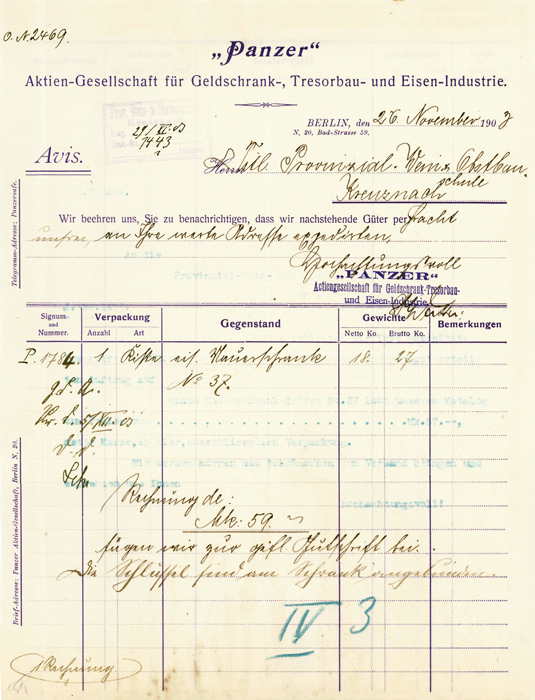 O. N. 2469.
„Panzer“
Aktien-Gesellschaft für Geldschrank-, Tresorbau- und Eisen-Industrie.
BERLIN, den 26. November 1903
N. 20, Bad-Strasse 59.
1443
Avis.
Herrn Ttl. Provinzial-Wein & Obstbau-
schule
Kreuznach
Wir beehren uns, Sie zu benachrichtigen, dass wir nachstehende Güter per Fracht
unfrei an Ihre werte Adresse expedirten.
Hochachtungsvoll
„PANZER“
Actiengesellschaft für Geldschrank-Tresorbau-
und Eisen-Industrie
Telegramm-Adresse: Panzersafe.
Signum- und Nummer.
Verpackung
Anzahl Art
Gegenstand
Gewichte
Netto Ko. Brutto Ko.
Bemerkungen
P. 1784 1 Kiste eis. Mauerschrank 18. 27
No 37.
Rechnung de:
Mk: 59.
fügen wir zur gefl. Gutschrift bei.
Die Schlüssel sind am Schrank angebunden.
IV 3
Brief-Adresse: Panzer Actien-Gesellschaft, Berlin N. 20.
1 Rechnung